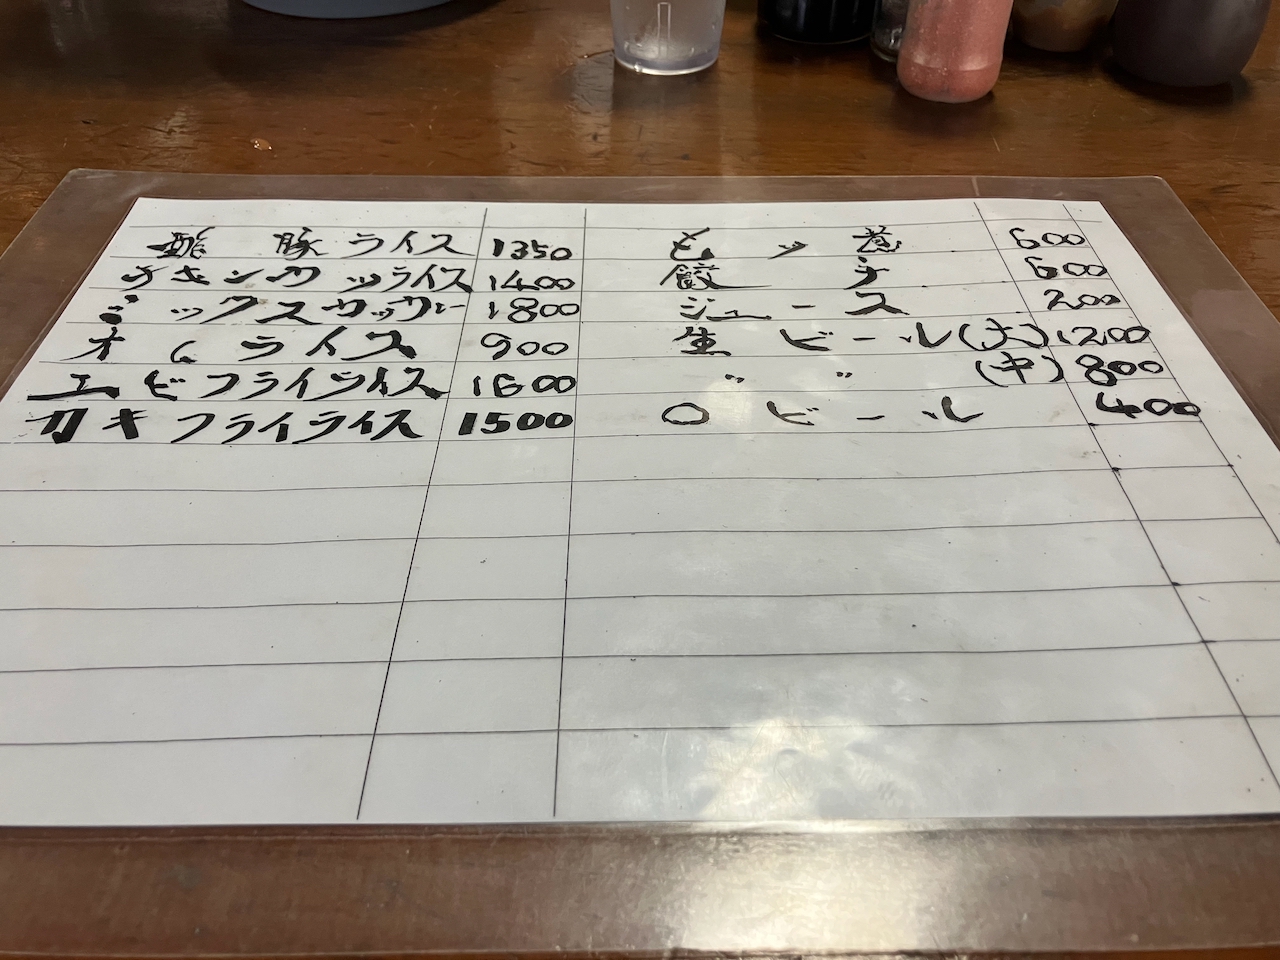 酢豚ライス 1350
チキンカツライス 1400
ミックスカツカレー 1800
オムライス 900
エビフライライス 1600
カキフライライス 1500
もツ煮 600
餃子 600
ジュース 200
生ビール(大) 1200
〃 〃 (中) 800
〇ビール 400